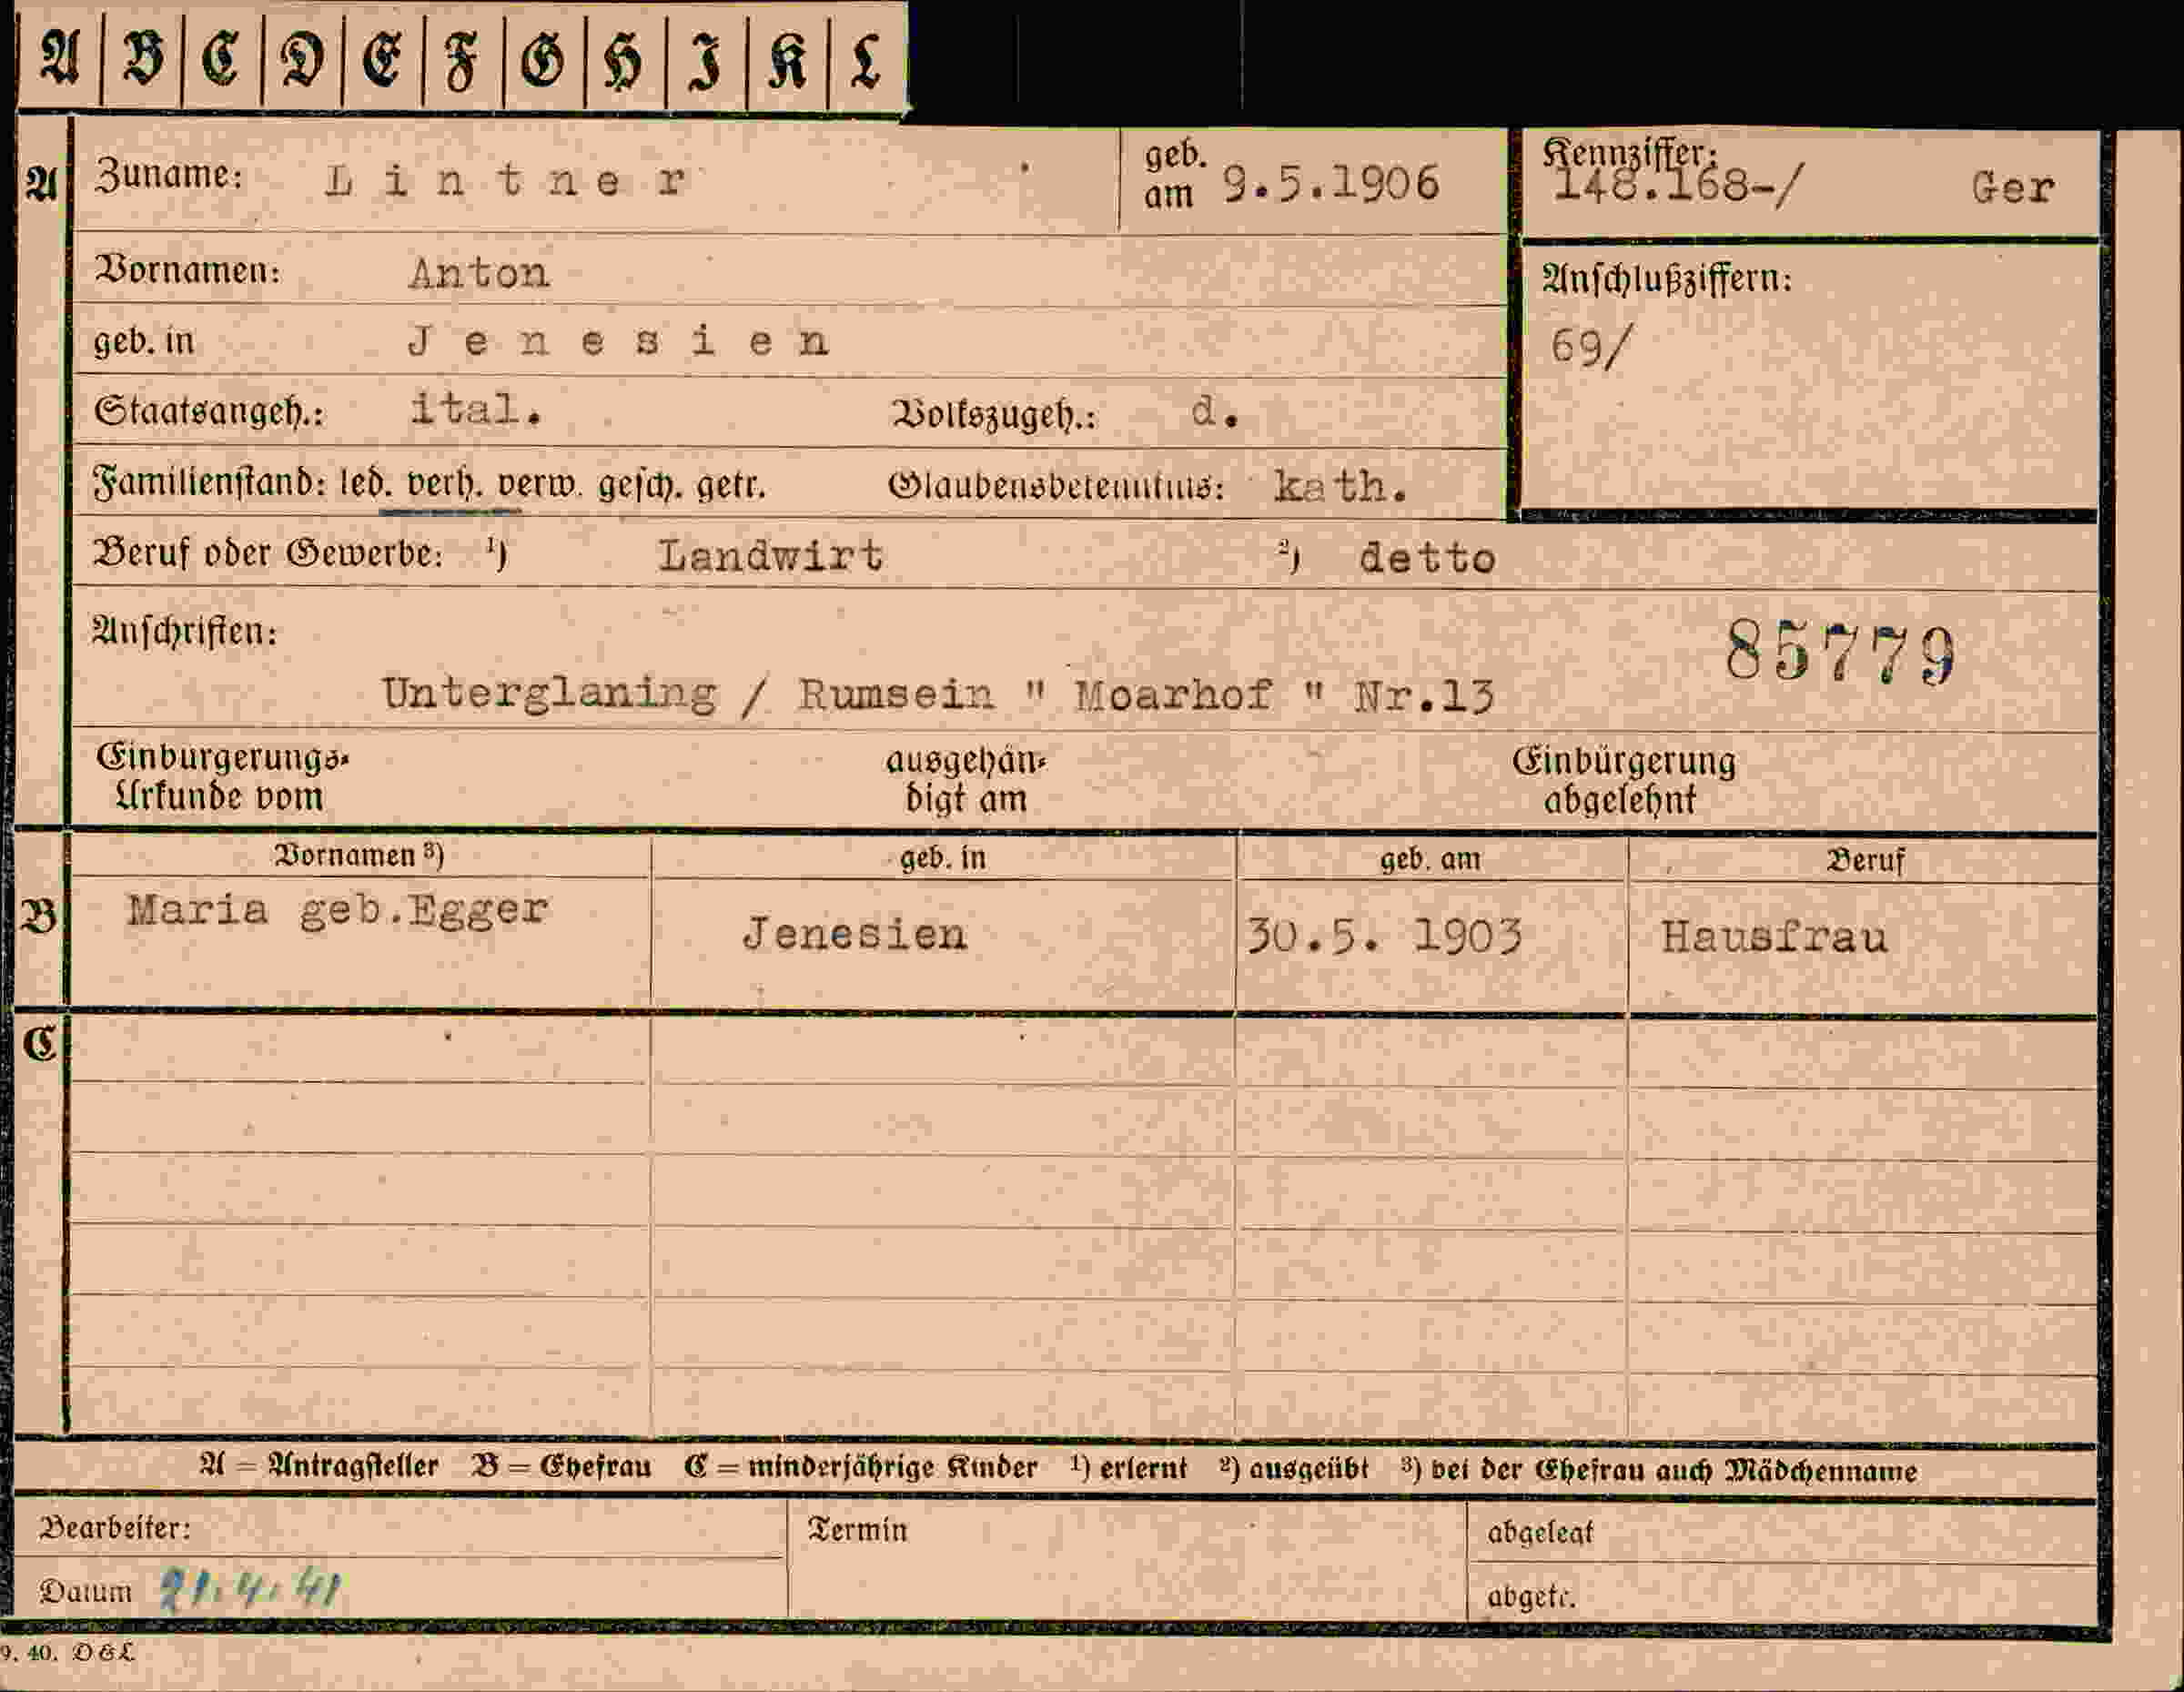 A B C D E F G H I K L
A Zuname: Lintner geb. am 9.5.1906 Kennziffer: 148.168-/ Ger
Vornamen: Anton Anschlußziffern:
geb. in Jenesien 69/
Staatsangeh.: ital. Volkszugeh.: d.
Familienstand: led. verh. verw. gesch. getr. Glaubensbekenntnis: kath.
Beruf oder Gewerbe: 1) Landwirt 2) detto
Anschriften: 85779
Unterglaning / Rumsein " Moarhof " Nr.13
Einbürgerungs- ausgehän- Einbürgerung
Urkunde vom digt am abgelehnt
Vornamen 3) geb. in geb. am Beruf
B Maria geb.Egger Jenesien 30.5. 1903 Hausfrau
C
A = Antragsteller B = Ehefrau C = minderjährige Kinder 1) erlernt 2) ausgeübt 3) bei der Ehefrau auch Mädchenname
Bearbeiter: Termin abgelegt
Datum 21.4.41 abgetr.
9. 40. D & L